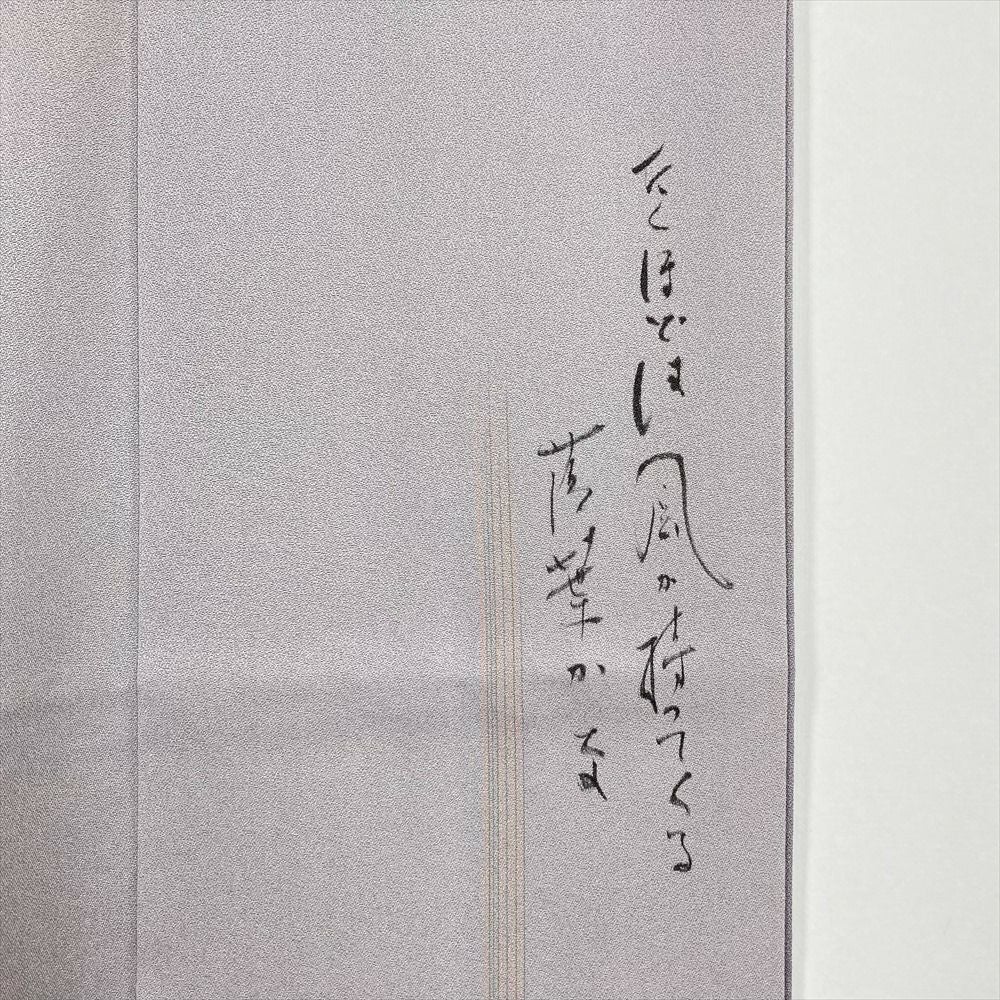 たくほどは風か持ってくる
落葉かな